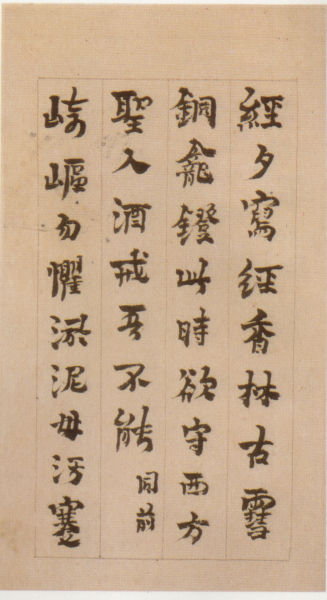 經夕寫經香林古雪
銅龕鐙此時欲守西方
聖人酒戒吾不能 同前
崎嶇勿懼淤泥毋污蹇